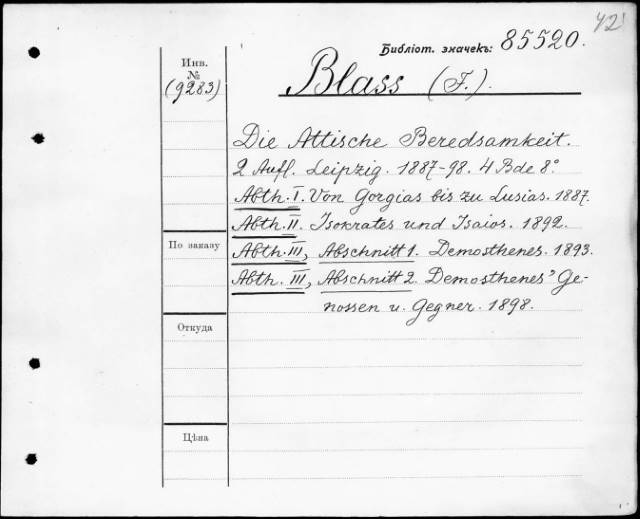 42
Библіот. значекъ: 85520.
Инв.
№
(9283)
Blass (F.).
Die Attische Beredsamkeit.
2 Aufl. Leipzig. 1887-98. 4 Bde 8°.
Abth. I. Von Gorgias bis zu Lusias. 1887.
Abth. II. Isokrates und Isaios. 1892.
По заказу
Abth. III, Abschnitt 1. Demosthenes. 1893.
Abth. III, Abschnitt 2. Demosthenes' Ge-
nossen u. Gegner. 1898.
Откуда
Цѣна